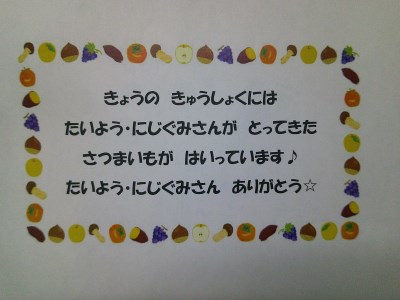 きょうの きゅうしょくには
たいよう・にじぐみさんが とってきた
さつまいもが はいっています♪
たいよう・にじぐみさん ありがとう☆